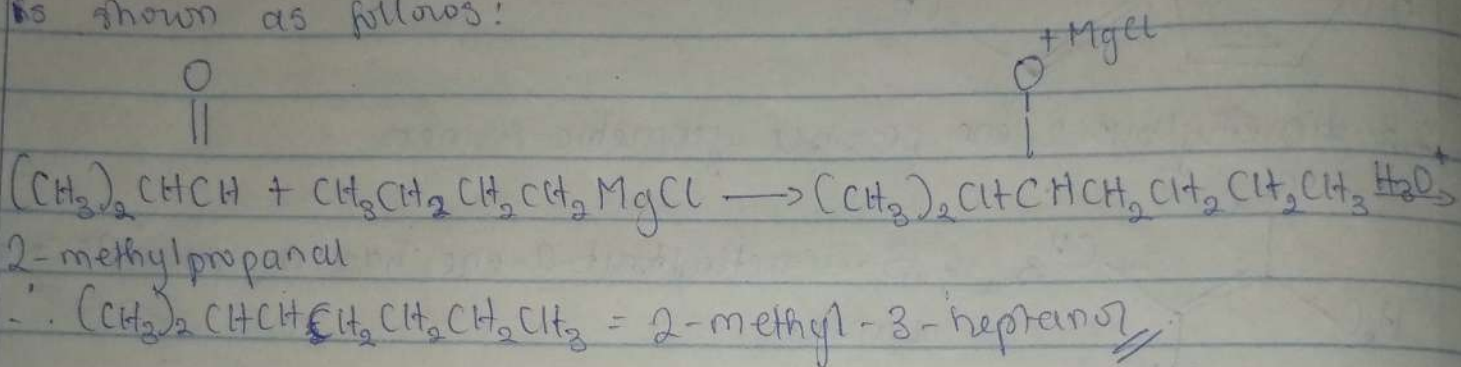 is shown as follows:
O O +MgCl
(CH₃)₂CHCH + CH₃CH₂CH₂CH₂MgCl → (CH₃)₂CHCHCH₂CH₂CH₂CH₃ H₃O⁺→
2-methylpropanal
∴ (CH₃)₂CHCHCH₂CH₂CH₂CH₃ = 2-methyl-3-heptanol